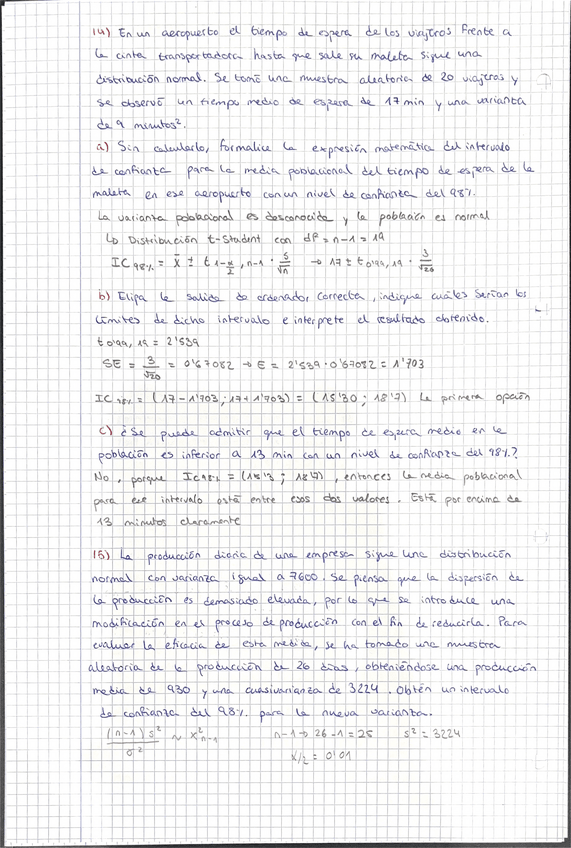 14) En un aeropuerto el tiempo de espera de los viajeros frente a
la cinta transportadora hasta que sale su maleta sigue una
distribución normal. Se tomó una muestra aleatoria de 20 viajeros y
se observó un tiempo medio de espera de 17 min y una varianza
de 9 minutos².
a) Sin calcularlo, formalice la expresión matemática del intervalo
de confianza para la media poblacional del tiempo de espera de la
maleta en ese aeropuerto con un nivel de confianza del 98%.
La varianza poblacional es desconocida y la población es normal
↳ Distribución t-Student con df = n-1 = 19
IC 98% = x̄ ± t 1-α/2, n-1 · s/√n → 17 ± t 0'99, 19 · 3/√20
b) Elija la salida de ordenador correcta, indique cuáles serían los
límites de dicho intervalo e interprete el resultado obtenido.
t 0'99, 19 = 2'539
SE = 3/√20 = 0'67082 → E = 2'539 · 0'67082 = 1'703
IC 98% = (17 - 1'703 ; 17 + 1'703) = (15'30 ; 18'7) La primera opción
c) ¿Se puede admitir que el tiempo de espera medio en la
población es inferior a 13 min con un nivel de confianza del 98%?
No, porque IC 98% = (15'3 ; 18'7), entonces la media poblacional
para ese intervalo está entre esos dos valores. Está por encima de
13 minutos claramente
15) La producción diaria de una empresa sigue una distribución
normal con varianza igual a 7600. Se piensa que la dispersión de
la producción es demasiado elevada, por lo que se introduce una
modificación en el proceso de producción con el fin de reducirla. Para
evaluar la eficacia de esta medida, se ha tomado una muestra
aleatoria de la producción de 26 días, obteniéndose una producción
media de 930 y una cuasivarianza de 3224. Obtén un intervalo
de confianza del 98% para la nueva varianza.
(n-1) s²/σ² ~ x²n-1 n-1 → 26-1 = 25 s² = 3224
α/2 = 0'01